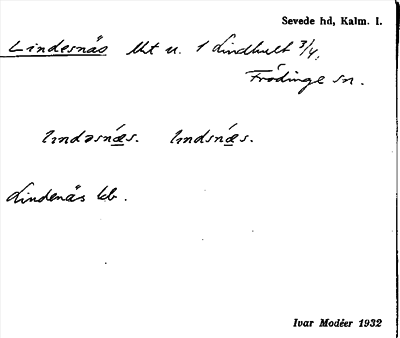 Sevede hd, Kalm. l.
Lindesnäs lht u. 1 Lindhult 3/4,
Frödinge sn.
lındəsnǽs. lındsnǽs.
Lindenäs kb.
Ivar Modéer 1932